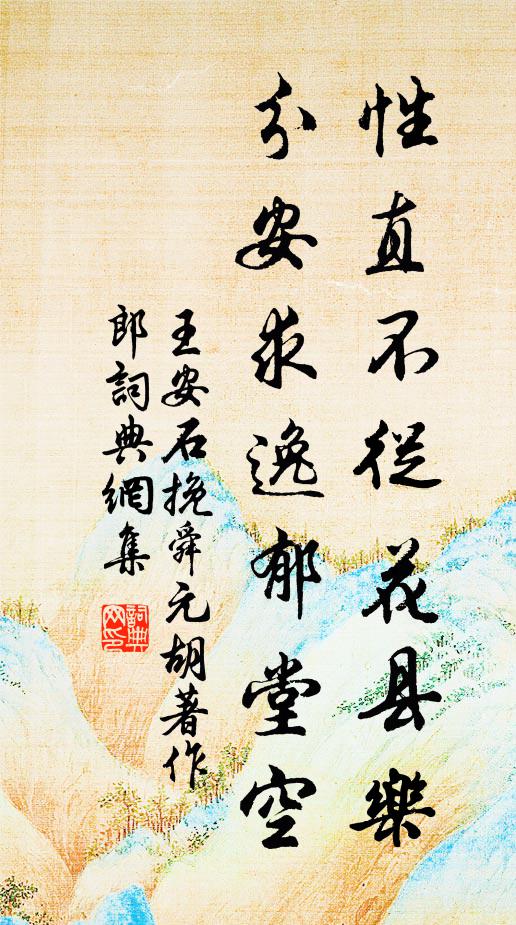 性直不從花县樂
分安求逸郁堂空
王安石挽舜元胡著作
郎詞典網集
詞典
网印